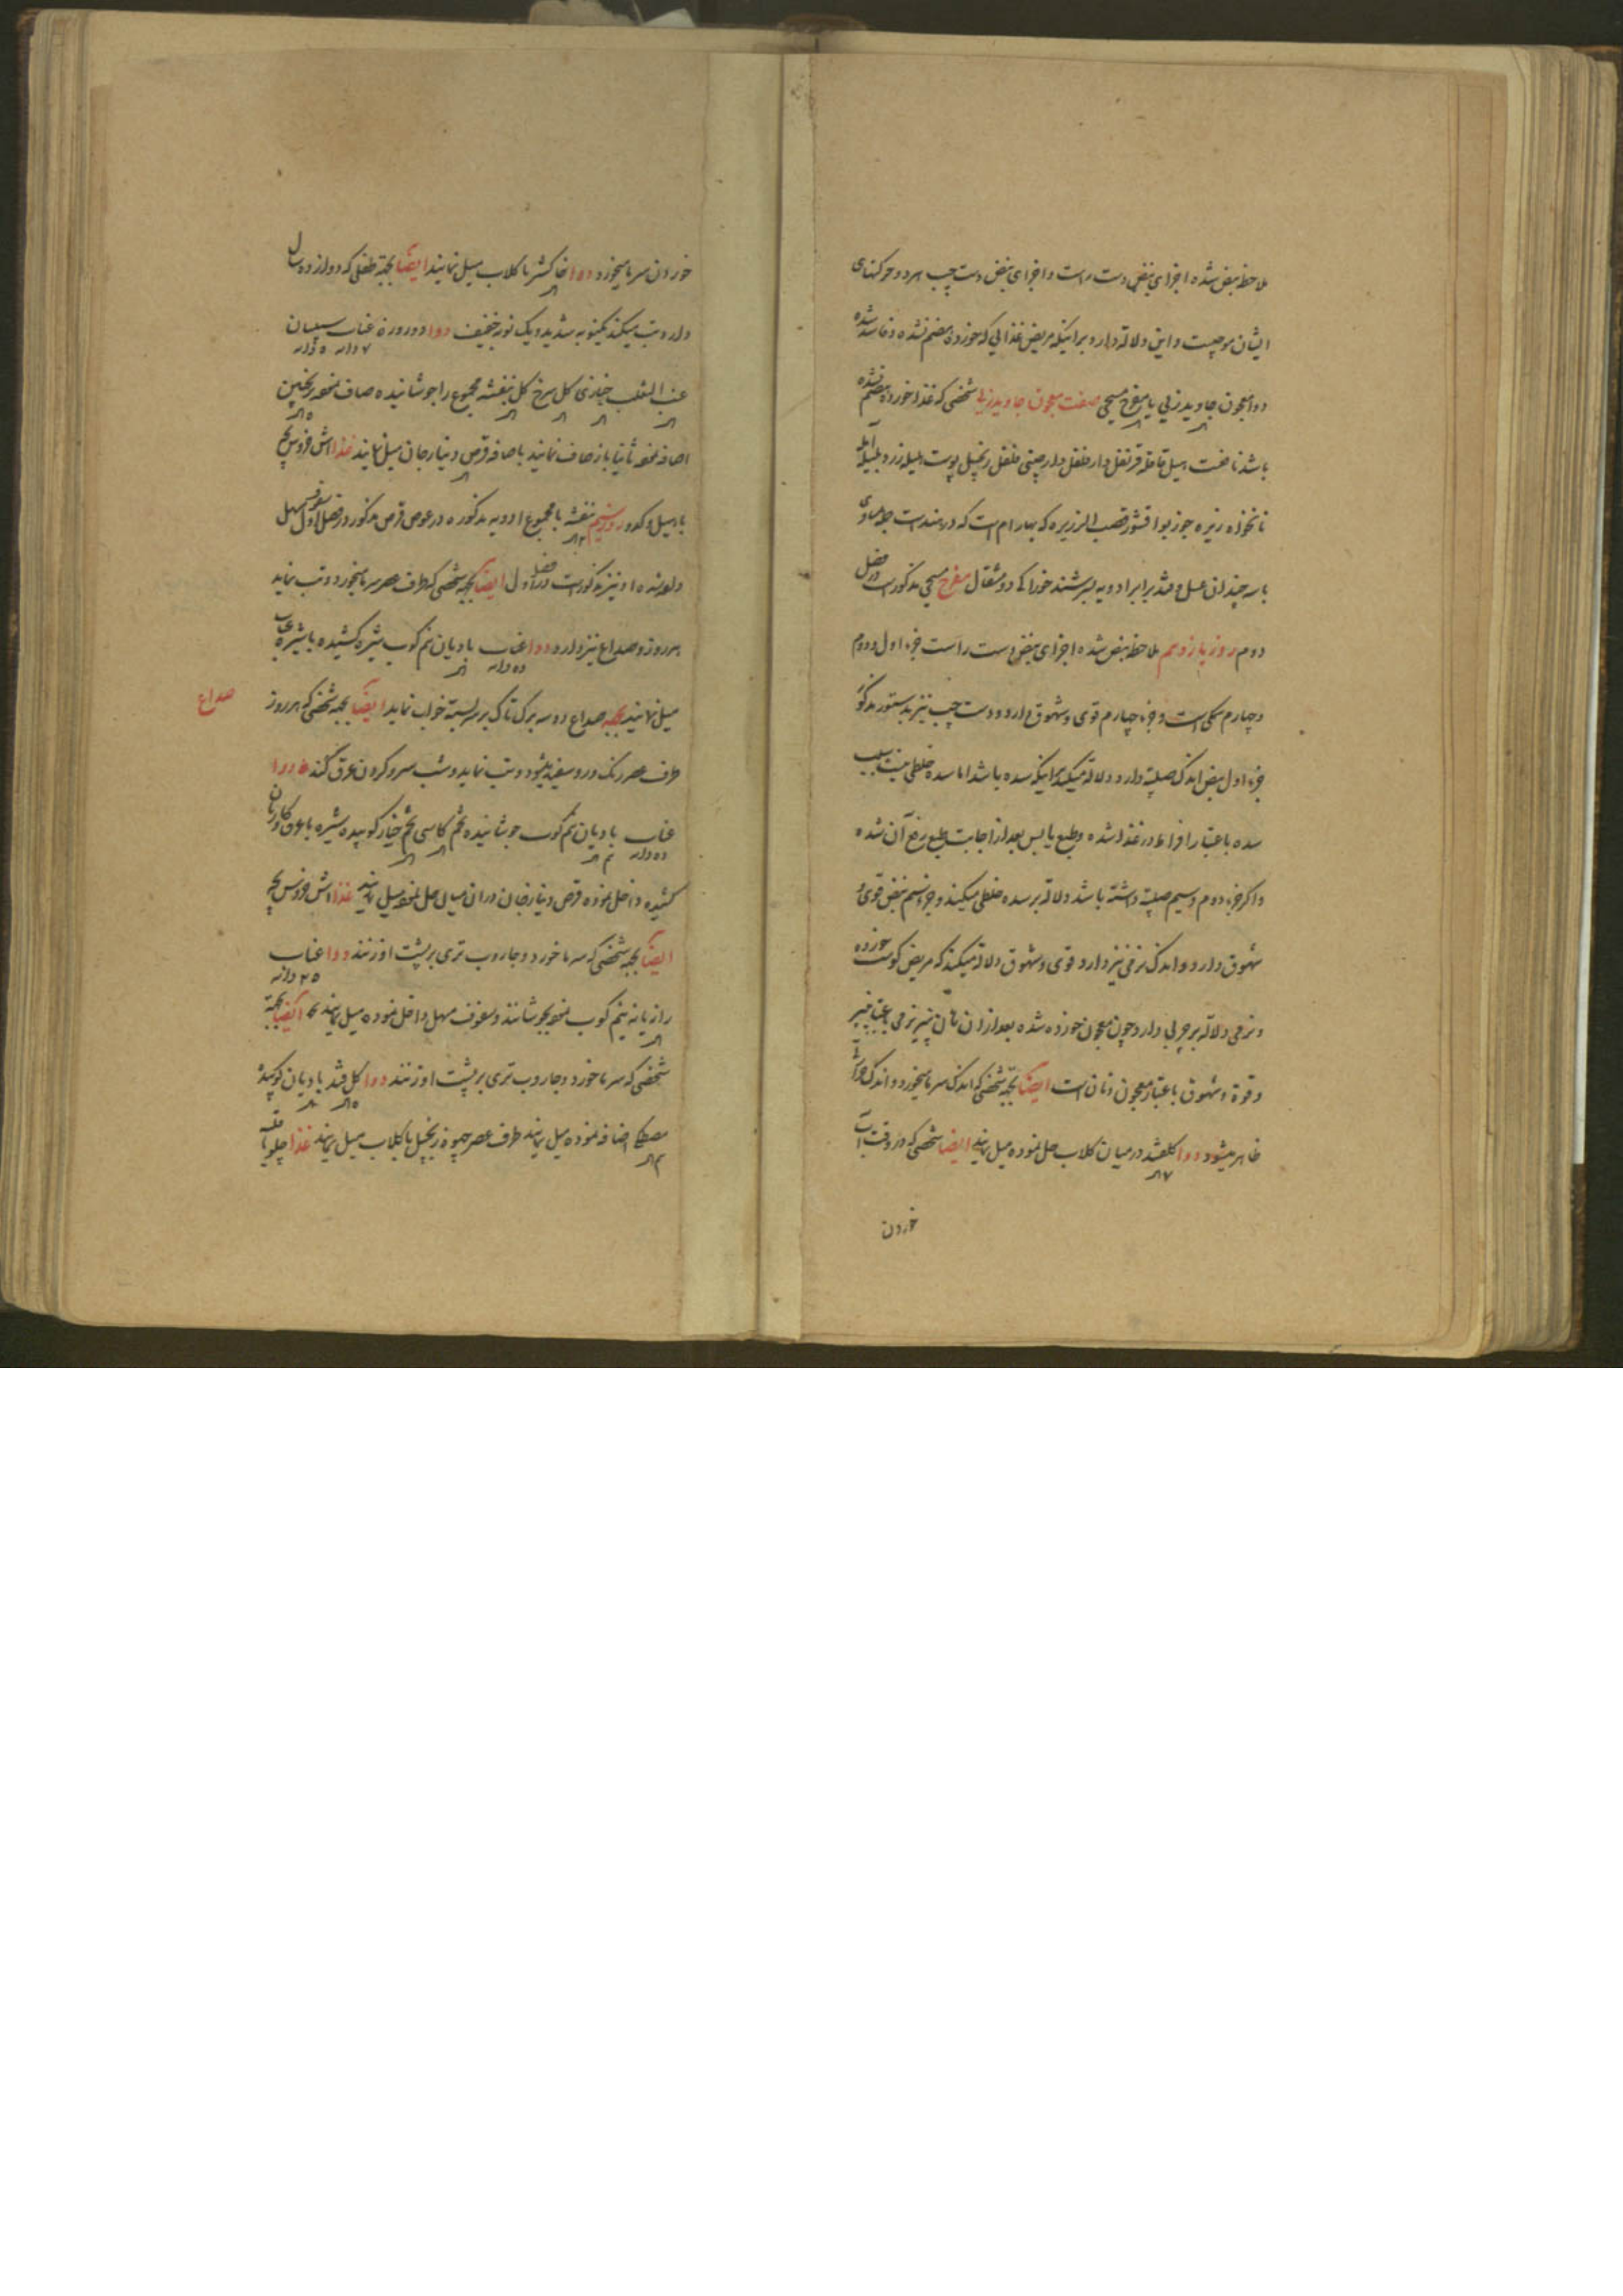 ملاحظه نبض شده اجزای نبض دست راست و اجزای نبض دست چپ هردو حرکتهای
ایشان موجیست و این دلالة دارد برانیکه مریض غذایی که خورده هضم نشده و فاسد شده
دوا معجون جاوید زنی یا مفرح مسیحی صفت معجون جاوید زنی شخصی که غذا خورده هضم نشده
باشد نافعست هیل قاقله قرنفل دارفلفل دارچینی فلفل زنجبیل پوست هلیله زرد بلیله آمله
نانخواه زیره جوزبوا قصب الزریره که بهارام است که در هند است جمله مساوی
با سه چندان عسل و قند برابر ادویه بسرشند خوراک دو مثقال مفرح مسیحی مذکور است در فصل
دوم روز یازدهم ملاحظه نبض شده اجزای نبض دست راست جزء اول و دوم
و چهارم یکی است و جزء چهارم قوی و شهوق دارد و دست چپ نیز بدستور مذکور
جزء اول نبض اندک صلبیة دارد و دلالة میکند برانیکه سده باشد اما سده خلطی نیست بسبب
سده باعتبار افراط در غذا شده و طبع یابس بعد از اجابت طبع رفع آن شده
و اگر جزء دوم و سیم صلبیة داشته باشد دلالة بر سده خلطی میکند و جزء سیم نبض قوی و
شهوق دارد و اندک نرمی نیز دارد قوی و شهوق دلالة میکند که مریض گوشت خورده
و نرمی دلالة بر چربی دارد چون معجون خورده شده بعد از ان نان پنیر نرمی باعتبار پنیر
و قوة و شهوق باعتبار معجون و نان است ایضا بجهة شخصی که اندک سرما میخورد و اندک حرارتی
ظاهر میشود دوا گلقند در میان گلاب حل نموده میل نمایند ایضا شخصی که در وقت آب
خوردن
خوردن سرما میخورد دوا خاکشیر با گلاب میل نمایند ایضا بجهة طفلی که دوازده سال
دارد تب میکند یکنوبه شدید و یک نوبه خفیف دوا دو روزه عناب سپستان
۷ دانه ۵ دانه
عنب الثعلب خبازی گل سرخ گل بنفشه مجموع را جوشانیده صاف نموده ترنجبین
اضافه نموده ثانیا باز صاف نمایند باضافه قرص و نیارجان میل نمایند غذا اش
با هیل و کدو روز سیم بنفشه با مجموع ادویه مذکوره در عوض قرص مذکور در فصل اول سفوف مسهل
و او نیز مذکور است در فصل اول ایضا بجهة شخصی که طرف عصر سرما میخورد و تب نماید
هر روز و صداع نیز دارد دوا عناب بادیان نیم کوب شیره کشیده با شیره
ده دانه
میل نمایند بجهه صداع دو سه برگ تاک بر سر بسته خواب نماید ایضا بجهه شخصی که هر روز
صداع
طرف عصر رنگ و رو سفید میشود و تب نماید و شب سر و گردن عرق کند دوا
عناب بادیان نیم کوب جوشانیده تخم کاسنی تخم خیار کوبیده شیره با عرق گاوزبان
ده دانه
کشیده داخل نموده قرص و نیارجان در ان میان حل نموده میل نمایند غذا اش
ایضا بجهه شخصی که سرما خورد و جاروب تری بر پشت او زنند دوا عناب
۲۵ دانه
رازیانه نیم کوب نموده بجوشانند و سفوف مسهل داخل نموده میل نمایند ایضا بجهة
شخصی که سرما خورد و جاروب تری بر پشت او زنند دوا گل قند بادیان کوبیده
مصطکی اضافه نموده میل نمایند طرف عصر زنجبیل با گلاب میل نمایند غذا چلو با